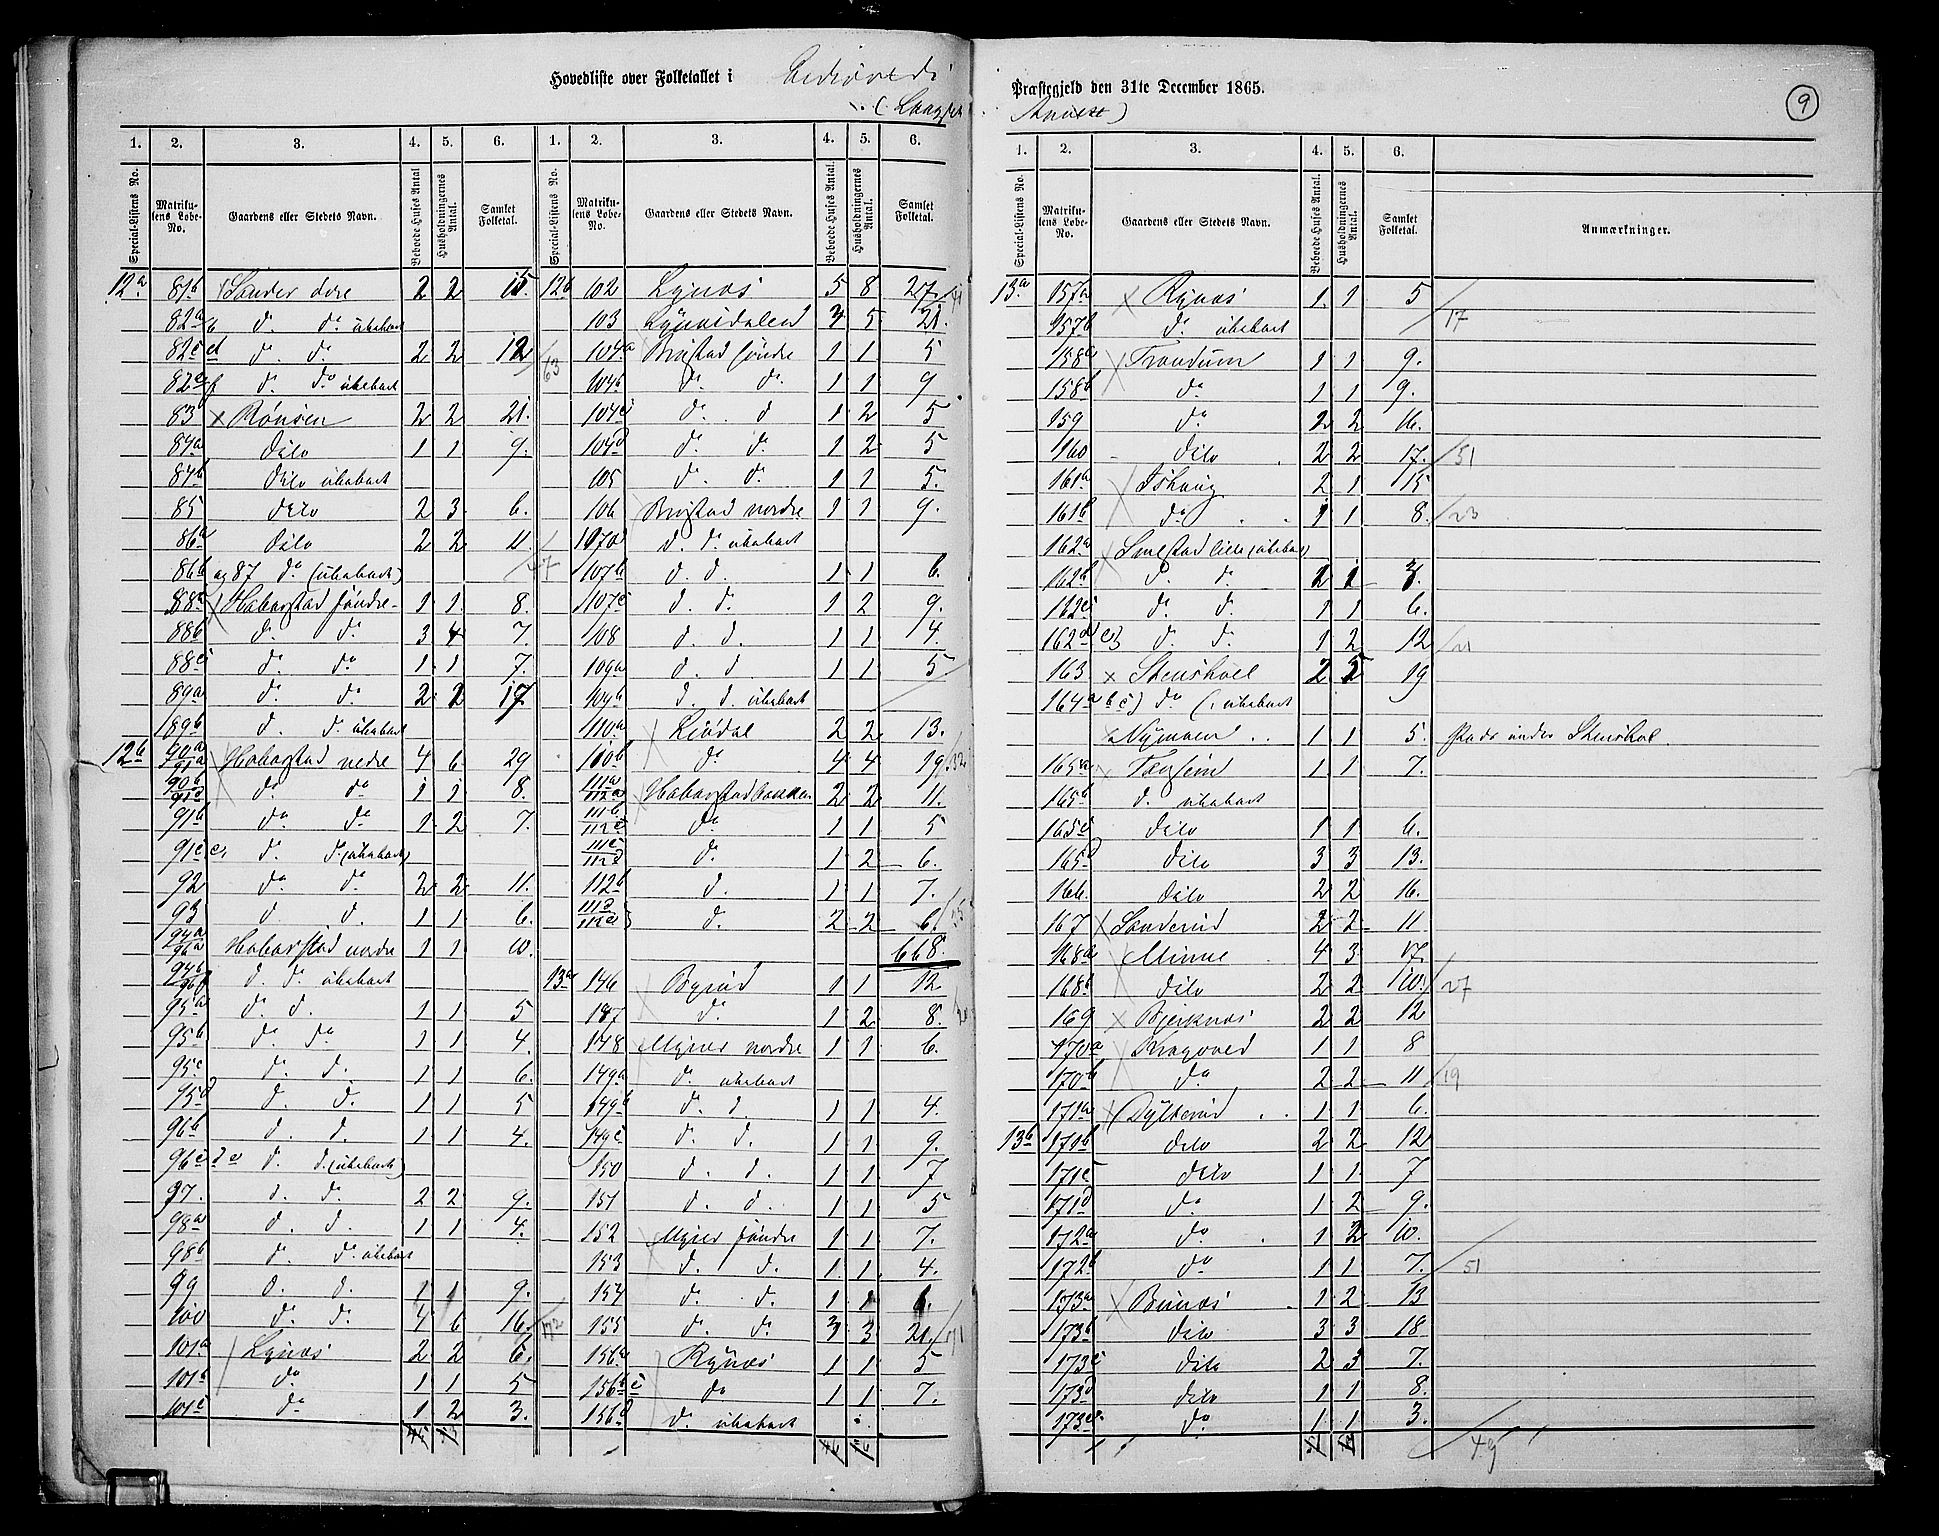 Hovedliste over Folketallet i
Præstegjeld den 31te December 1865.
9
1. 2. 3. 4. 5. 6. 1. 2. 3. 4. 5. 6.
Special-Listens No. Matrikulens Løbe-No. Gaardens eller Stedets Navn. Beboede Huses Antal. Husholdningernes Antal. Samlet Folketal. Special-Listens No. Matrikulens Løbe-No. Gaardens eller Stedets Navn. Beboede Huses Antal. Husholdningernes Antal. Samlet Folketal.
12a 81b Sander 2 2 15
82a do do ubeboet
82c d do do 2 2 12
82e f do do ubeboet
83 Rønsen 2 2 21.
84a dito 1 1 9.
84b dito ubeboet
85 dito 2 3 6.
86a dito 2 2 11.
86b og 87 do (ubeboet)
88a Haberstad søndre 1 1 8.
88b do do 3 4 7.
88c do do 1 1 7.
89a do do 2 2 17
89b d. d. ubeboet
12b 90a 91a Haberstad nedre 4 6 29
90b 91d do do 1 1 8.
91b do do 1 2 7.
91c e d. d. (ubeboet)
92 do do 2 2 11.
93 d. d. 1 1 6.
94a 96a Haberstad nordre 1 1 10.
94b 96f d. d. ubeboet
95a d. d. 1 1 5
95b do do 1 1 4.
95c do d. 1 1 6.
95d d. d. 1 1 5
96b d. d. 1 1 4.
96c d e d. d. (ubeboet)
97. d. do 2 2 9.
98a d. d. 1 1 4.
98b d. d. ubeboet
99 d. d. 1 1 9.
100 do do 4 6 16.
101a Lynæs 2 2 6.
101b do 1 1 5
101c do 1 2 3.
12b 102 Lynæs 5 8 27.
103 Lynæsdalen 5 21.
104a Brøstad søndre 1 1 5
104b do do 1 1 9
104c d. d 1 2 5
104d d. d. 1 2 5
105 d. d. 1 1 5.
106 Brøstad nordre 1 1 9.
107a d. d. ubeboet
107b d. d. 1 1 6.
107c d. d. 1 2 9.
108 d. d. 1 1 4.
109a d. d 1 1 5
109b d. d. ubeboet
110a Liødal 2 2 13.
110b do 4 4 19
111a 112a Haberstadbakken 2 2 11.
111b 112c do 1 1 5
111c 112d d. 1 2 6.
112b d. 1 1 7.
111d 112e d. 2 2 6.
668.
13a 146 Byrud 1 1 12
147 d. 1 2 8.
148 Myrer nordre 1 1 6.
149a do ubeboet
149b d. d. 1 1 4.
149c d. d. 1 1 9.
150 d. d. 1 1 7
151 d. d. 1 1 5
152 Myrer søndre 1 1 7.
153 d. d. 1 1 4.
154 do do 1
155 do do 3 21.
156a Rynæs 1 1 5
156b c do 1 1 7.
156d do ubeboet
1. 2. 3. 4. 5. 6.
Special-Listens No. Matrikulens Løbe-No. Gaardens eller Stedets Navn. Beboede Huses Antal. Husholdningernes Antal. Samlet Folketal. Anmærkninger.
13a 157a Rynæs 1 1 5
157b do ubeboet 17
158a Trondum 1 1 9.
158b do 1 1 9.
159 do 2 2 16.
160 dito 2 2 17. 51
161a 2 1 15
161b do 1 1 8. 23
162a Smestad lille (ubeboet)
162b d. d. 1
162c do do 1 1 6.
162d e d. d. 1 2 12 21
163 Stenshoel 2 5 19
164a b c) do (ubeboet
Nymoen 1 1 5. Plads under Stenshol.
165a 1 1 7.
165b d. ubeboet
165c dito 1 1 6.
165d dito 3 3 13.
166. dito 2 2 16.
167 Sanderud 2 2 11
168a Minne 4 3 17.
168b dito 2 2 10. 27
169 Bjerknæs 2 2 12
170a 1 1 8
170b do 2 2 11 19
171a 1 1 6.
13b 171b dito 2 2 12
171c dito 1 1 7
171d do 1 2 9.
172a do 1 2 10.
172b do 1 1 7. 51
173a 1 2 13
173b dito 3 3 18
173c dito 2 3 7.
173d dito 1 1 8.
173e do 1 1 3.
49